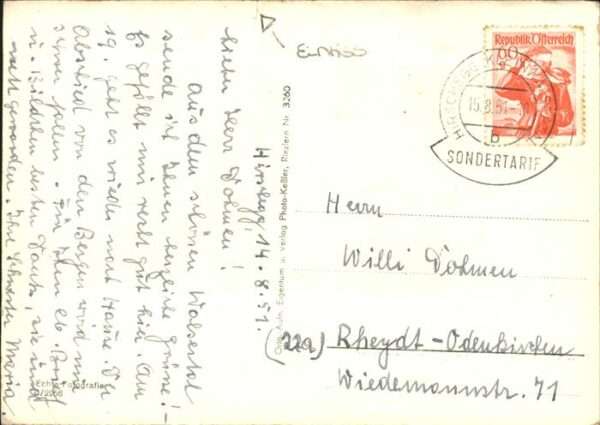 Einriss
Hirschegg, 14.8.51.
Lieber Herr Dohmen!
Aus dem schönen Walsertal
sende ich Ihnen herzliche Grüsse! –
Es gefällt mir recht gut hier. Am
19. geht es wieder nach Hause. Der
Abschied von den Bergen wird mir
schwer fallen. – Für Ihren lb. Brief
u. Bildchen besten Dank, sie sind
nett geworden. Ihre Schwester Maria
Echte Fotografie
Eigentum u. Verlag Photo-Keßler, Riezlern Nr. 3260
Republik Österreich
60
15.8.51
b
SONDERTARIF
Herrn
Willi Dohmen
(22a) Rheydt-Odenkirchen
Wiedemannstr. 71